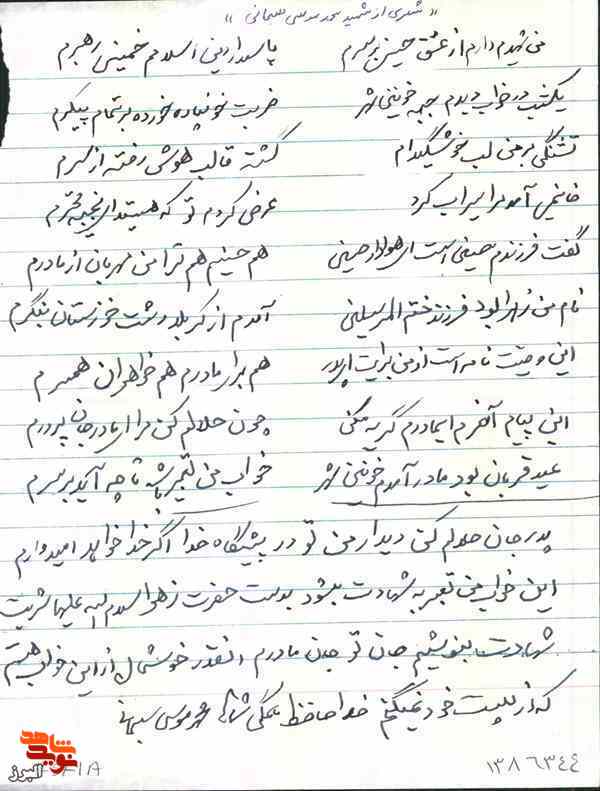 « شعری از شهید محمد موسی سبحانی »
من شهیدم دارم از عشق حسین بر سرم پاسدار دین اسلامم خمینی رهبرم
یکشب در خواب دیدم جبهه خونین شهر ضربت خونپاره خورده بر تمام پیکرم
تشنگی بر من لب خوشکیده ام گشته قالب هوش رفته از سرم
خانمی آمد مرا سیراب کرد عرض کردم تو که هستی ای محترم
گفت فرزندم حسین است ای هوادار حسینی هم حسینم هم ترا من مهربان از مادرم
نام من زهرا بود فرزند ختم المرسلینی آمدم از کربلا دشت خوزستان بنگرم
این وصیت نامه است از من برایت ای پدر هم برار مادرم هم خواهران همسرم
این پیام آخرم ای مادرم گریه مکنی چون حلالم کن مرا ای مادر جان پرورم
عید قربان بود مادر آمدم خونین شهر خواب من تعبیر باشه تا چه آید بر سرم
پدر جان حلالم کنی دیدار من تو در پیشگاه خدا اگر خدا خواهد امیدوارم
این خواب من تعبیر به شهادت بشود بدست حضرت زهرا سلام الله علیها شربت
شهادت بنوشیم جان تو جان مادرم انقدر خوشحال از این خواب هستم
که از پوست خود نمیگنجم خداحافظ همگی شما محمد موسی سبحانی
۱۳۸۶۳۴۴
شاهد
نوید
البرز